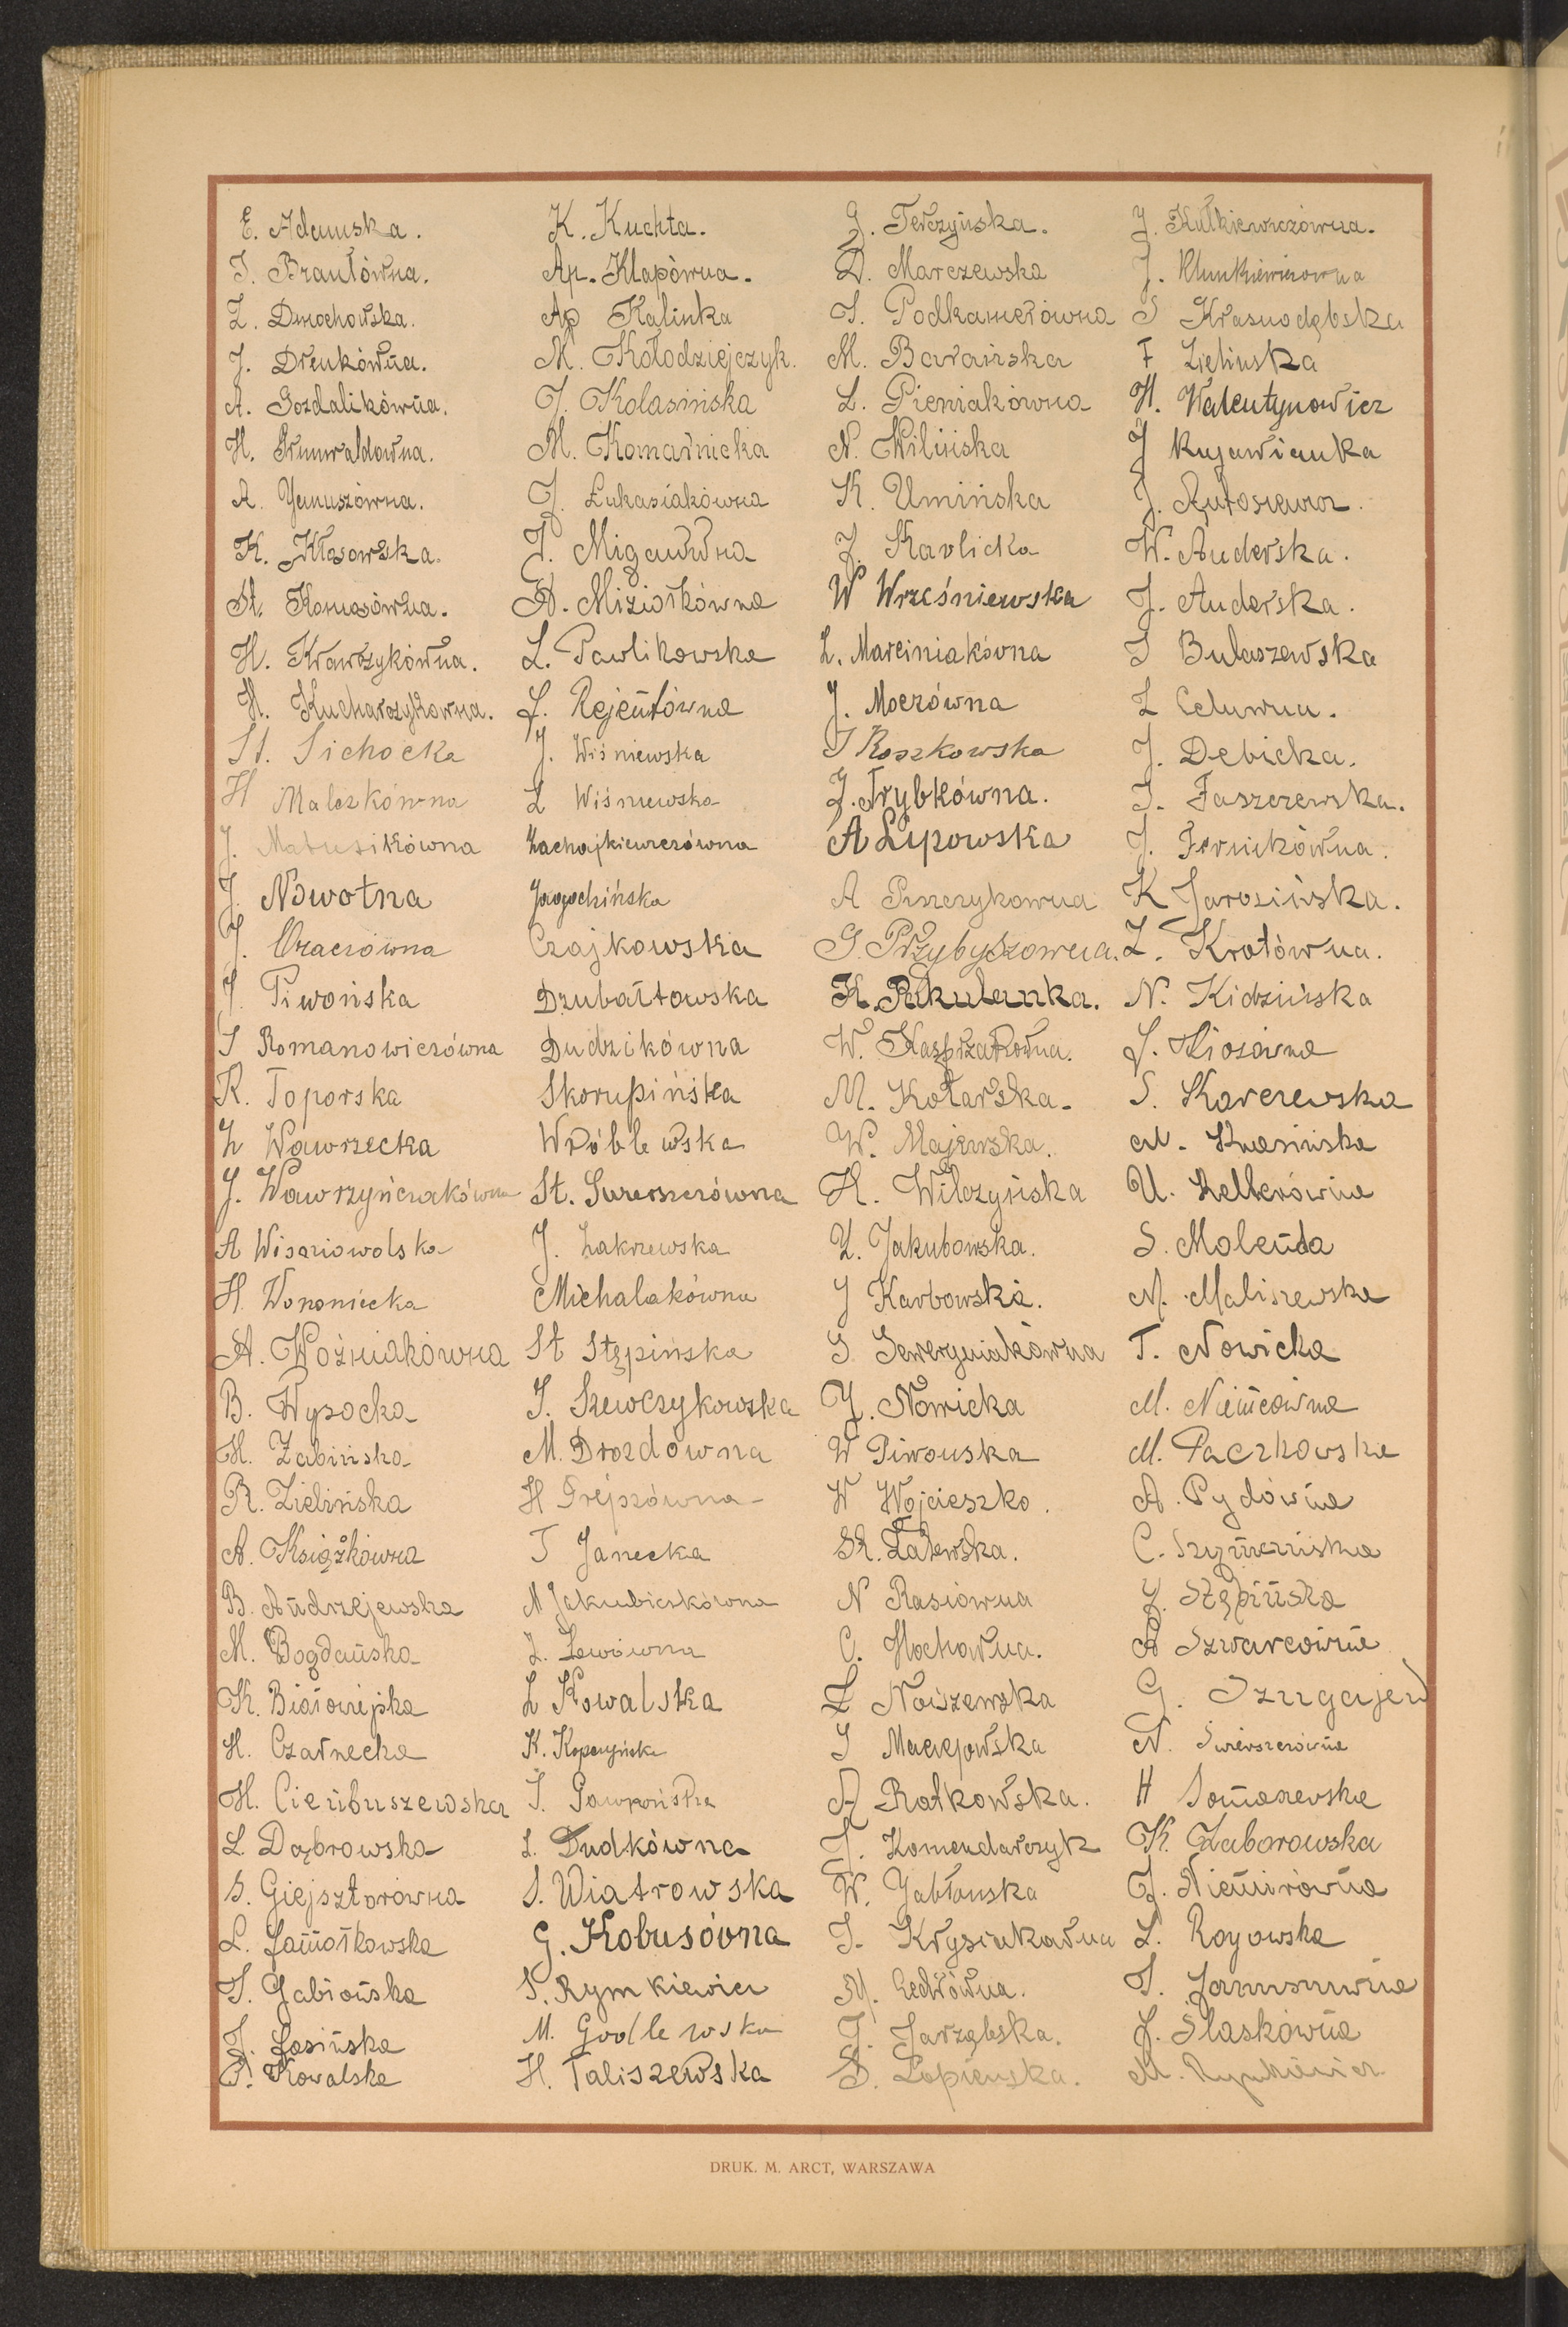 E. Adamska.
I. Brautówna.
Z. Dmochowska.
J. Drenkówna.
A. Gozdalikówna.
H. Grunwaldowna.
A. Januszówna.
K. Kłosowska.
St. Komasówna.
H. Krawczykówna.
H. Kucharczykowna.
St. Sichocka
H Malczkówna
J. Matusikówna
J. Nowotna
J. Oraczówna
J. Piwońska
S Romanowiczówna
R. Toporska
Z Wawrzecka
J. Wawrzyńczakówna
A Wiśniowolska
H. Wononiecka
A. Woźniakówna
B. Wysocka
H. Żabińska
R. Zielińska
A. Książkówna
B. Andrzejewska
M. Bogdańska
K. Białowiejska
H. Czarnecka
H. Ciembuszewska
L. Dąbrowska
S. Giejsztorówna
L. Jamiołkowska
S. Jabłońska
J. Jasińska
P. Kowalska
K. Kuchta.
Ap. Kłapówna.
Ap Kalinka
M. Kołodziejczyk.
J. Kolasińska
M. Komarnicka
J. Łukasiakówna
J. Migawna
A. Miziołkówna
L. Pawlikowska
J. Rejentówna
J. Wiśniewska
L Wiśniewska
Zachajkiewiczówna
Jagodzińska
Czajkowska
Dzubałtowska
Dudzikówna
Skorupińska
Wróblewska
St. Świerszczówna
J. Zakrzewska
Michalakówna
St Stępińska
J. Szewczykowska
M. Drozdowna
H Grejszówna
T Janecka
M Jakubiczkówna
Z. Lewówna
L Kowalska
K. Kopczyńska
S. Dudkówna
S. Wiatrowska
G. Kobusówna
S. Rymkiewicz
M. Godlewska
H. Taliszewska
G. Terczyńska.
D. Marczewska
S. Podkamerówna
M. Barańska
L. Pieniakówna
N. Wilińska
K. Umińska
J. Karlicka
W Wrześniewska
L. Marciniakówna
J. Moczówna
S Roszkowska
J. Trybkówna.
A Lipowska
A Puszczykowna
G. Przybyszowna.
H. Pikulanka.
W. Kasprzakówna.
M. Kotarska.
W. Majewska.
H. Wilczyńska
Z. Jakubowska.
J Karbowska.
S Seweryniakówna
J. Nowicka
W Piwonska
W Wojcieszko.
St. Zalewska.
N Rasiówna
C. Hochówna.
Z Noiszewska
J Maciejowska
A Rotkowska.
J. Komendarczyk
W. Jabłonska
J. Krysiukówna
M. Cedrówna.
J. Jarzębska.
S. Łopieńska.
J. Kutkiewiczówna.
J. Klimkiewiczowna
S Krasnodębska
F Zielinska
H. Walentynowicz
J Kujawianka
J. Antosiewicz.
W. Anderska.
J. Anderska.
S Bułaszewska
J. Dębicka.
J. Faszczewska.
J. Fornikówna.
K Jarosińska.
Z. Krotówna.
N. Kidzińska
J. Kiosówna
S. Karczewska
M. Krasińska
U. Kellerówna
S. Molenda
M. Maliszewska
T. Nowicka
M. Niemcówna
M. Paczkowska
A. Pydówna
C. Szymańska
J. Stępińska
A Szwarcówna
G. Szugajew
N. Świerszczówna
H Tomaszewska
K. Zaborowska
J. Niemirówna
L. Royowska
J. Ślaskówna
M. Rymkiewicz
DRUK. M. ARCT, WARSZAWA